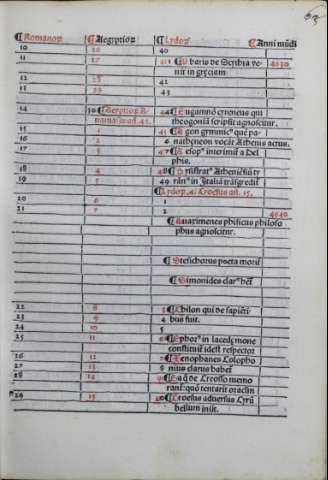 Romanoꝝ Aegyptioꝝ Lydoꝝ Anni mūdi
10 26 40
11 27 41 baris de Scythia ve 4630
nit in gręciam
12 28 42
13 29 43
14 30 44 Eugamnō cyreneus qui
theogoniā scripsit agnoscitur.
15 1 45 Agon gymnic⁹ quē pa
16 2 46 natheneon vocāt Athenis actus.
17 3 47 Aesop⁹ interimit a Del
phis.
18 4 48 Pisistrat⁹ Atheniēsiū ty
19 5 49 rān⁹ in Italiā trāsgredit
Lydoꝝ Croesus an. 15.
20 6 1
21 7 2 4640
Anaximenes phisicus philoso
phus agnoscitur.
Stesichorus poeta morit
Simonides clar⁹ het
22 8 3 Chilon qui de sapiēti
23 9 4 bus fuit.
24 10 5
25 11 6 Ephor⁹ in lacedęmone
constituit idest respector
26 12 7 Xenophanes Colopho
27 13 8 nius clarus habet
28 14 9 Ea de Croeso memo
rant: quō tentarit oraclm
29 15 10 Croesus adversus Cyrū
bellum init.